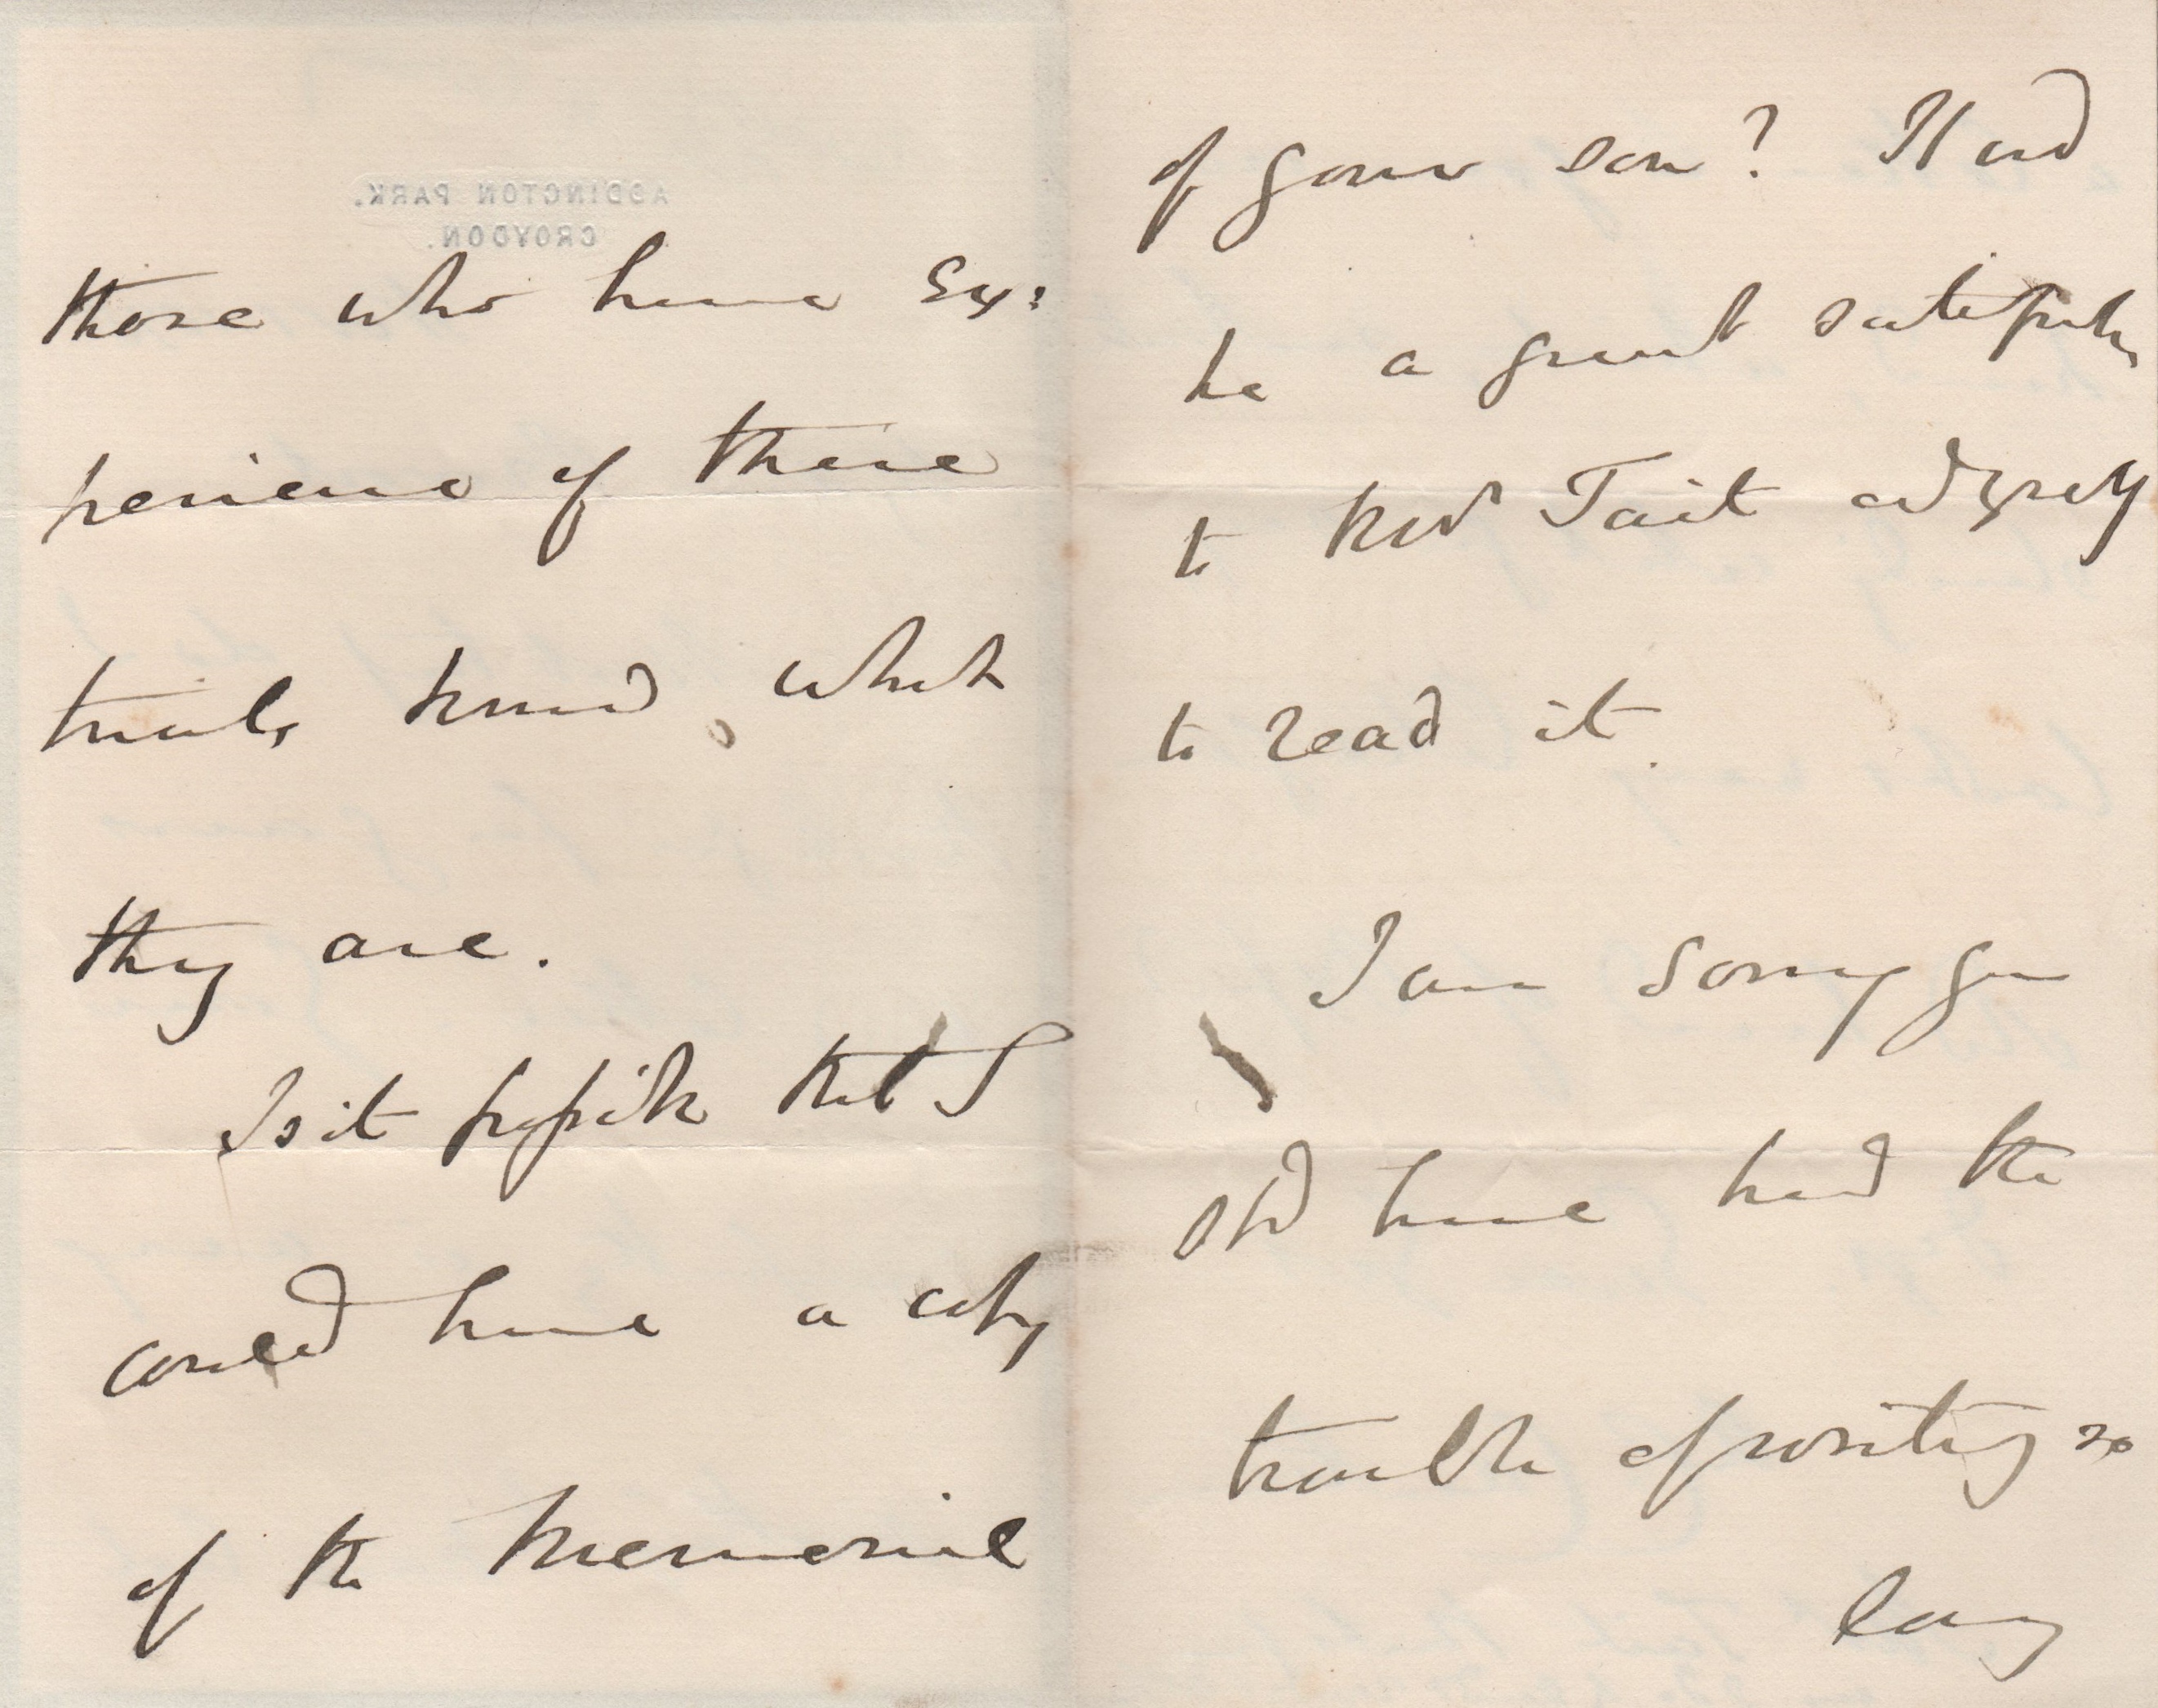 ADDINGTON PARK.
CROYDON.
those who have Ex:
perience of these
trials know what
they are.
Is it possible that I
could have a copy
of the Memorial
of your son? It wd
be a great satisfaction
to Mrs Tait and myself
to read it.
I am sorry you
shd have had the
trouble of writing so
long